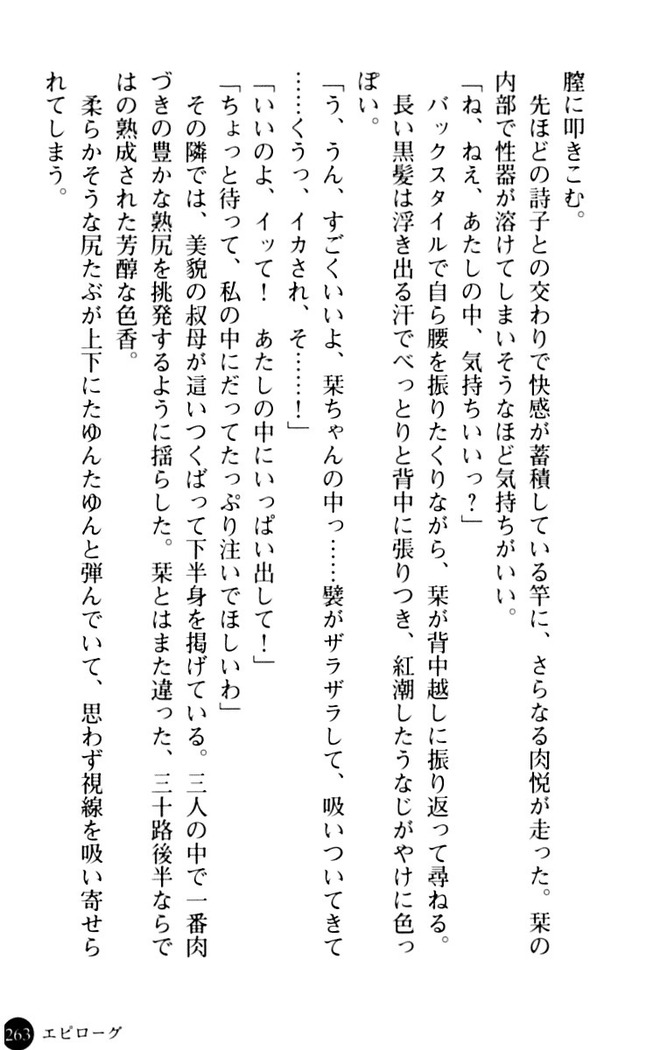 膣に叩きこむ。
　先ほどの詩子との交わりで快感が蓄積している竿に、さらなる肉悦が走った。栞の
内部で性器が溶けてしまいそうなほど気持ちがいい。
「ね、ねえ、あたしの中、気持ちいいっ？」
　バックスタイルで自ら腰を振りたくりながら、栞が背中越しに振り返って尋ねる。
　長い黒髪は浮き出る汗でべっとりと背中に張りつき、紅潮したうなじがやけに色っ
ぽい。
「う、うん、すごくいいよ、栞ちゃんの中っ……襞がザラザラして、吸いついてきて
……くうっ、イカされ、そ……！」
「いいのよ、イッて！　あたしの中にいっぱい出して！」
「ちょっと待って、私の中にだってたっぷり注いでほしいわ」
　その隣では、美貌の叔母が這いつくばって下半身を掲げている。三人の中で一番肉
づきの豊かな熟尻を挑発するように揺らした。栞とはまた違った、三十路後半ならで
はの熟成された芳醇な色香。
　柔らかそうな尻たぶが上下にたゆんたゆんと弾んでいて、思わず視線を吸い寄せら
れてしまう。
263 エピローグ